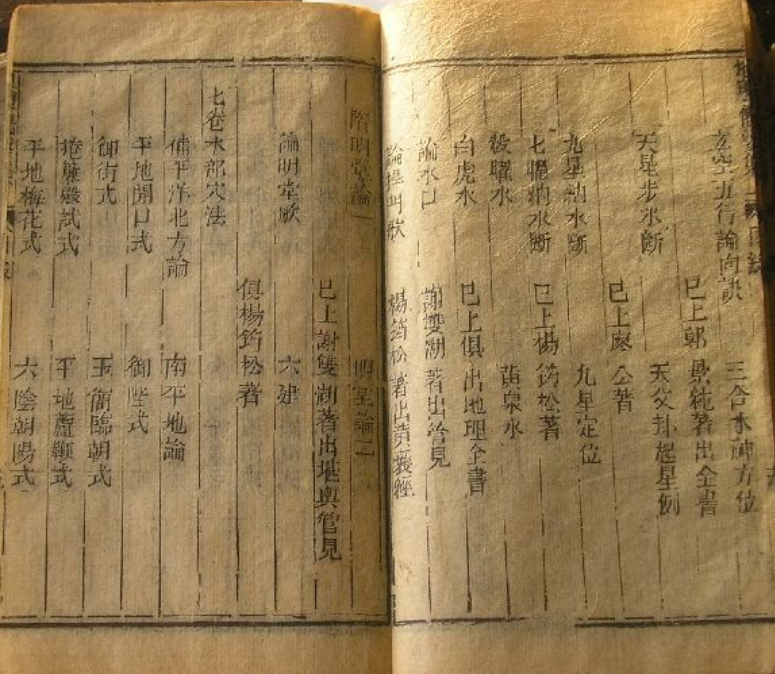 玄空五行論向訣 三合水神方位
已上郭景純著出全書
天星步水斷 天父卦起星例
已上廖公著
九星納水斷 九星定位
七曜納水斷 已上楊筠松著
殺曜水 黃泉水
白虎水 已上俱出地理全書
論水口 謝雙湖著出管見
楊筠松著出青囊經
明堂論一 明堂論二
已上謝雙湖著出堪輿管見
論明堂歌 六建
俱楊筠松著
七卷水部穴法
補平洋北方論 南平地論
平地開口式 御堦式
御街式 玉簡臨朝式
捲簾殿試式 平地蘆鞭式
平地梅花式 六陰朝陽式